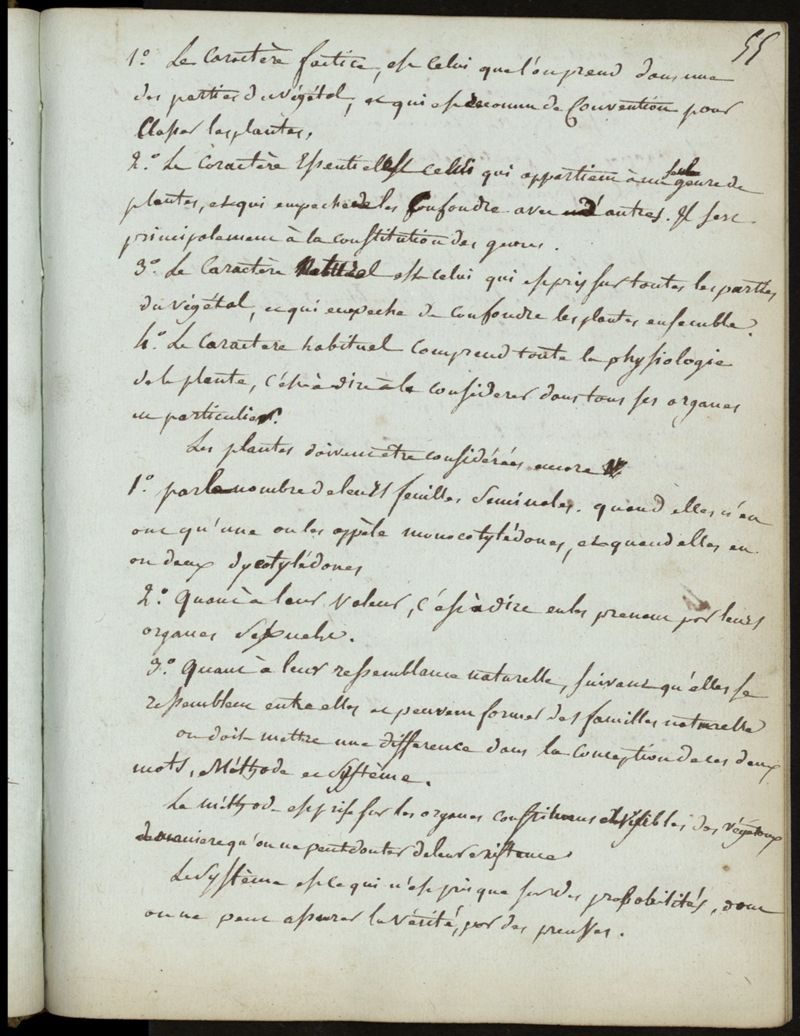 55
1.° Le Caractère factice, est Celui que l'on prend dans une
des parties du végétal, et qui est reconnu de Convention pour
Classer les plantes.
2.° Le Coractère Essentiel est celui qui appartient à un seul genre de
plantes, et qui empeche de les Confondre avec d'autres. Il sert
principalement à la constitution des genres.
3.° Le Caractère Naturel est celui qui est pris sur toutes les parties
du végétal, et qui empeche de confondre les plantes ensemble.
4.° Le Caractere habituel Comprend toute la physiologie
de la plante, c'est à dire à la considerer dans tous ses organes
en particulier.
Les plantes doivent etre considérées encore
1.° par le nombre de leurs feuilles Seminales. quand elles n'en
ont qu'une on les appèle monocotylédones, et quand elles en
on deux dycotylédones
2.° Quant à leur Valeur, C'est à dire en les prenant par leurs
organes Sexuels.
3.° Quant à leur ressemblance naturelle, suivant qu'elles se
ressemblent entre elles et peuvent former des familles naturelle
on doit mettre une différence dans la Conception de ces deux
mots, Méthode et Système.
La méthode est prise sur les organes constituans et visibles des végétaux
de maniere qu'on ne peut douter de leur existence
Le Système est ce qui n'est pris que sur des probabilités, dont
on ne peut assurer la Vérité, par des preuves.